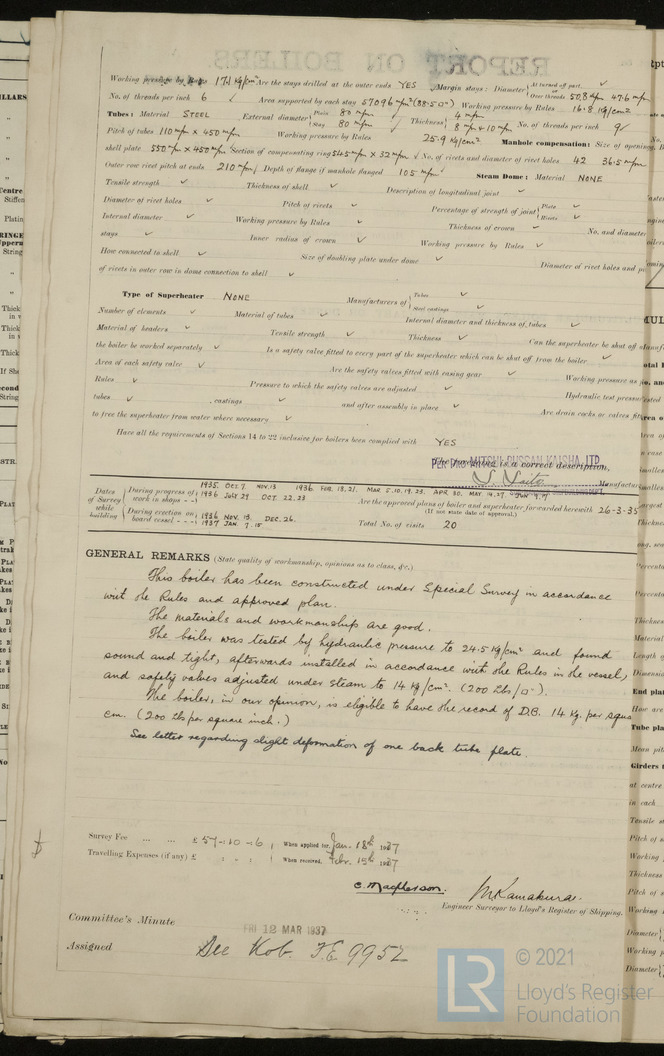 REPORT ON BOILERS
Working pressure by Rules 17.1 Kg/cm² Are the stays drilled at the outer ends YES Margin stays: Diameter { At turned off part, Over threads 50,8 m/m 47.6 m/m
No. of threads per inch 6 Area supported by each stay 57096 m/m² (88.5 □") Working pressure by Rules 16.8 Kg/cm²
Tubes: Material STEEL External diameter { Plain 80 m/m Stay 80 m/m Thickness { 4 m/m 8 m/m & 10 m/m No. of threads per inch 9
Pitch of tubes 110 m/m X 450 m/m Working pressure by Rules 25.9 Kg/cm² Manhole compensation: Size of opening
shell plate 550 m/m X 450 m/m Section of compensating ring 545 m/m X 32 m/m No. of rivets and diameter of rivet holes 42 36.5 m/m
Outer row rivet pitch at ends 210 m/m Depth of flange if manhole flanged 105 m/m Steam Dome: Material NONE
Tensile strength ✓ Thickness of shell ✓ Description of longitudinal joint ✓
Diameter of rivet holes ✓ Pitch of rivets ✓ Percentage of strength of joint { Plate ✓ Rivets ✓
Internal diameter ✓ Working pressure by Rules ✓ Thickness of crown ✓ No. and diameter
stays ✓ Inner radius of crown ✓ Working pressure by Rules ✓
How connected to shell ✓ Size of doubling plate under dome ✓ Diameter of rivet holes and
of rivets in outer row in dome connection to shell ✓
Type of Superheater NONE Manufacturers of { Tubes ✓ Steel castings ✓
Number of elements ✓ Material of tubes ✓ Internal diameter and thickness of tubes ✓
Material of headers ✓ Tensile strength ✓ Thickness ✓ Can the superheater be shut off
the boiler be worked separately ✓ Is a safety valve fitted to every part of the superheater which can be shut off from the boiler ✓
Area of each safety valve ✓ Are the safety valves fitted with easing gear ✓ Working pressure as
Rules ✓ Pressure to which the safety valves are adjusted ✓ Hydraulic test pressure
tubes ✓ , castings ✓ and after assembly in place ✓ Are drain cocks or valves fit
to free the superheater from water where necessary ✓
Have all the requirements of Sections 14 to 22 inclusive for boilers been complied with YES
PER PRO MITSUI BUSSAN KAISHA, LTD.
The foregoing is a correct description,
Manufactur
Dates of Survey while building
During progress of work in shops - - 1935. OCT 7. NOV. 13 1936 FEB. 13, 21. MAR 5. 10. 19. 23. APR 30. MAY 14. 27. JUN 9. 17
1936 JULY 29 OCT. 22. 23
Are the approved plans of boiler and superheater forwarded herewith 26-3-35
(If not state date of approval.)
During erection on board vessel - - - 1936 NOV. 13. DEC. 26.
1937 JAN. 7. 15.
Total No. of visits 20
GENERAL REMARKS (State quality of workmanship, opinions as to class, &c.)
This boiler has been constructed under Special Survey in accordance
with the Rules and approved plan.
The materials and workmanship are good.
The boiler was tested by hydraulic pressure to 24.5 Kg/cm² and found
sound and tight, afterwards installed in accordance with the Rules in the vessel,
and safety valves adjusted under steam to 14 Kg/cm². (200 Lbs/□").
The boiler, in our opinion, is eligible to have the record of D.B. 14 Kg. per squa
cm. (200 Lbs per square inch.)
See letter regarding slight deformation of one back tube plate.
Survey Fee ... ... £57-10-6 When applied for, Jan. 18th 1937
Travelling Expenses (if any) £ : : When received, Febr. 15th 1937
C. Macpherson. M Kamakura.
Engineer Surveyor to Lloyd's Register of Shipping.
Committee's Minute FRI 12 MAR 1937
Assigned See Kob. F.E. 9952
LR © 2021
Lloyd's Register
Foundation